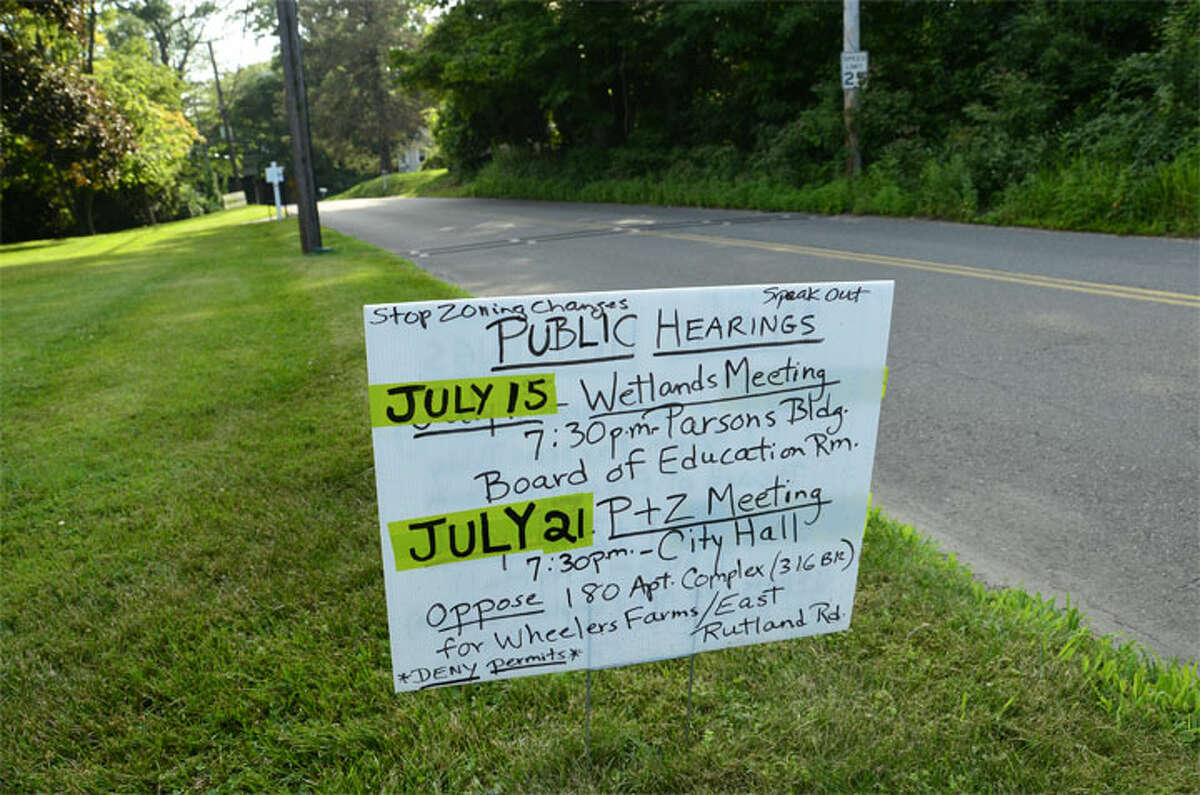 SPEED
LIMIT
25
Stop Zoning Changes
Speak Out
PUBLIC HEARINGS
JULY 15 - Wetlands Meeting
7:30 p.m. Parsons Bldg.
Board of Education Rm.
JULY 21. P+Z Meeting
7:30 p.m. - City Hall
Oppose 180 Apt. Complex (316 BR)
for Wheelers Farms/East
Rutland Rd.
*DENY permits*